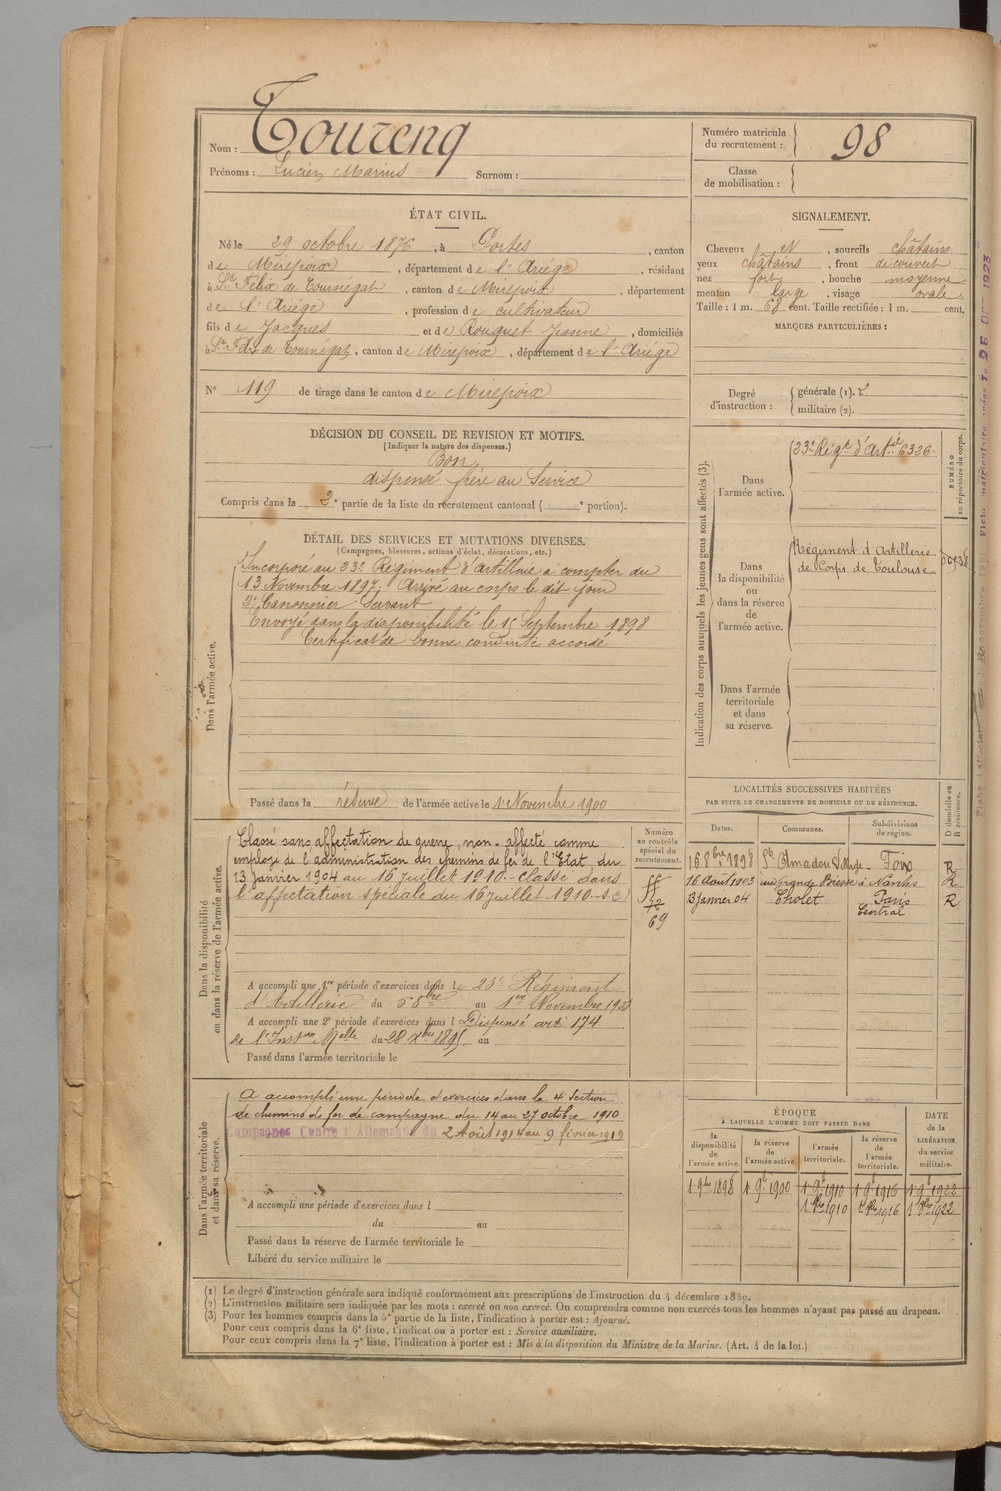 Nom : Toureng
Prénoms : Lucien Marius Surnom :
Numéro matricule du recrutement : 98
Classe de mobilisation :
ÉTAT CIVIL.
Né le 29 octobre 1876, à Portes, canton
de Mirepoix, département de l'Ariége, résidant
à St Félix de Tournégat, canton de Mirepoix, département
de l'Ariége, profession de cultivateur
fils de Jacques et de Rouquet Jeanne, domiciliés
à St Félix de Tournégat, canton de Mirepoix, département de l'Ariége
SIGNALEMENT.
Cheveux et, sourcils châtains
yeux châtains, front découvert
nez fort, bouche moyenne
menton large, visage ovale
Taille : 1 m. 68 cent. Taille rectifiée : 1 m. cent.
MARQUES PARTICULIÈRES :
N° 119 de tirage dans le canton de Mirepoix
Degré d'instruction : générale (1). 2
militaire (2).
DÉCISION DU CONSEIL DE REVISION ET MOTIFS.
(Indiquer la nature des dispenses.)
Bon
dispensé frère au Service
Compris dans la 2e partie de la liste du recrutement cantonal ( e portion).
DÉTAIL DES SERVICES ET MUTATIONS DIVERSES.
(Campagnes, blessures, actions d'éclat, décorations, etc.)
Dans l'armée active.
Incorporé au 23e Régiment d'artillerie à compter du
13 Novembre 1897, Arrivé au corps le dit jour
2e Canonnier Servant
Envoyé dans la disponibilité le 1 Septembre 1898
Certificat de bonne conduite accordé
Passé dans la réserve de l'armée active le 1 Novembre 1900
Indication des corps auxquels les jeunes gens sont affectés (3).
NUMÉRO au répertoire du corps.
Dans l'armée active.
23e Régt d'Artie 6326
Dans la disponibilité ou dans la réserve de l'armée active.
Régiment d'Artillerie
de Corps de Toulouse
Dans l'armée territoriale et dans sa réserve.
Dans la disponibilité ou dans la réserve de l'armée active.
Classé sans affectation de guerre, non-affecté comme
employé de l'administration des chemins de fer de l'Etat, du
13 janvier 1904 au 16 juillet 1910.- classé dans
l'affectation spéciale du 16 juillet 1910.-
Numéro au contrôle spécial du recrutement.
69
A accompli une 1re période d'exercices dans le 23e Régiment
d'Artillerie du 5 8bre au 1er Novembre
A accompli une 2e période d'exercices dans l Dispensé art 174
de l'Inston Melle du 28 Xbre 1895 au
Passé dans l'armée territoriale le
LOCALITÉS SUCCESSIVES HABITÉES
PAR SUITE DE CHANGEMENTS DE DOMICILE OU DE RÉSIDENCE.
Dates. Communes. Subdivisions de région. D domicile ou R résidence.
16 8bre 1898 St Amadou Village Foix R
16 Août 1903 rue Grande Biesse à Nantes R
13 janvier 04 Cholet Paris Central R
Dans l'armée territoriale et dans sa réserve.
A accompli une période d'exercices dans la 4e Section
de chemins de fer de campagne du 14 au 27 octobre 1910
Campagnes Contre l'Allemagne du 2 Août 1914 au 9 février 1919
A accompli une période d'exercices dans l
du au
Passé dans la réserve de l'armée territoriale le
Libéré du service militaire le
ÉPOQUE
À LAQUELLE L'HOMME DOIT PASSER DANS
la disponibilité de l'armée active. la réserve de l'armée active. l'armée territoriale. la réserve de l'armée territoriale. DATE de la LIBÉRATION du service militaire.
1 9bre 1898 1 9b 1900 1 9b 1910 1 9b 1916 1 9b 1922
1 8bre 1910 1 8bre 1916 1 8bre 1922
(1) Le degré d'instruction générale sera indiqué conformément aux prescriptions de l'instruction du 4 décembre 1889.
(2) L'instruction militaire sera indiquée par les mots : exercé ou non exercé. On comprendra comme non exercés tous les hommes n'ayant pas passé au drapeau.
(3) Pour les hommes compris dans la 5e partie de la liste, l'indication à porter est : Ajourné.
Pour ceux compris dans la 6e liste, l'indication à porter est : Service auxiliaire.
Pour ceux compris dans la 7e liste, l'indication à porter est : Mis à la disposition du Ministre de la Marine. (Art. 4 de la loi.)